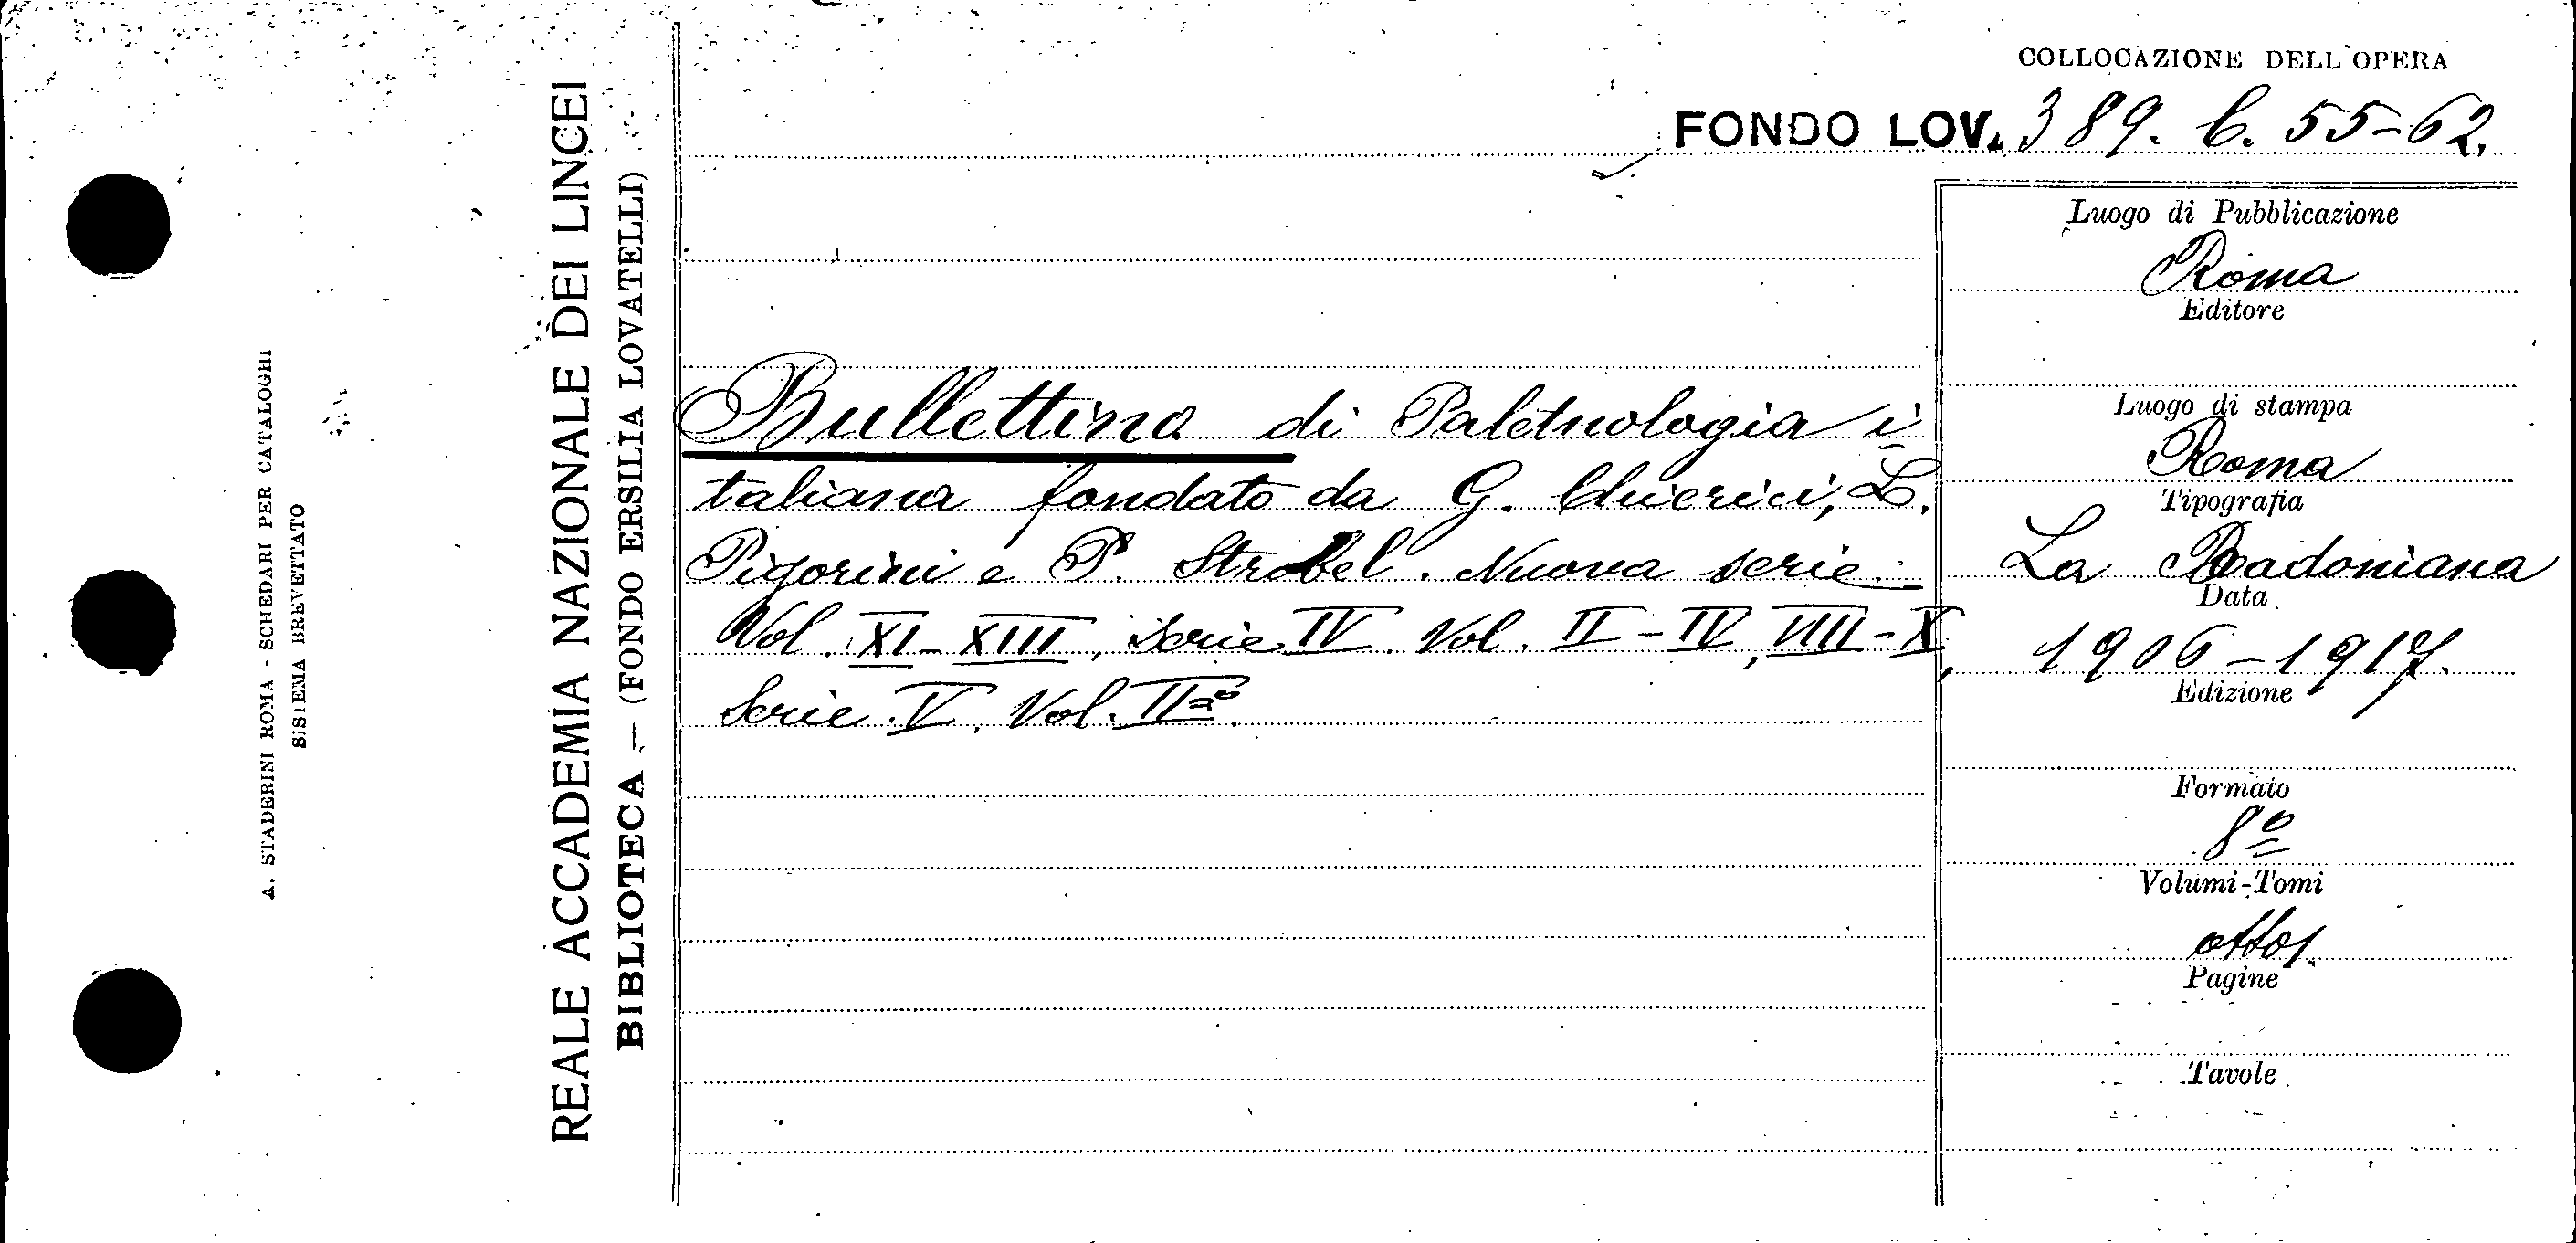 A. STADERINI ROMA - SCHEDARI PER CATALOGHI
SISTEMA BREVETTATO
REALE ACCADEMIA NAZIONALE DEI LINCEI
BIBLIOTECA — (FONDO ERSILIA LOVATELLI)
COLLOCAZIONE DELL'OPERA
FONDO LOV. 389. C. 55-62.
Bullettino di Paletnologia i-
taliana fondato da G. Chierici, L.
Pigorini e P. Strobel. Nuova serie.
Vol. XI-XIII, Serie IV. Vol. II-IV, VIII-X,
Serie V. Vol. II°.
Luogo di Pubblicazione
Roma
Editore
Luogo di stampa
Roma
Tipografia
La Badoniana
Data
1906-1917.
Edizione
Formato
8º
Volumi-Tomi
otto
Pagine
Tavole